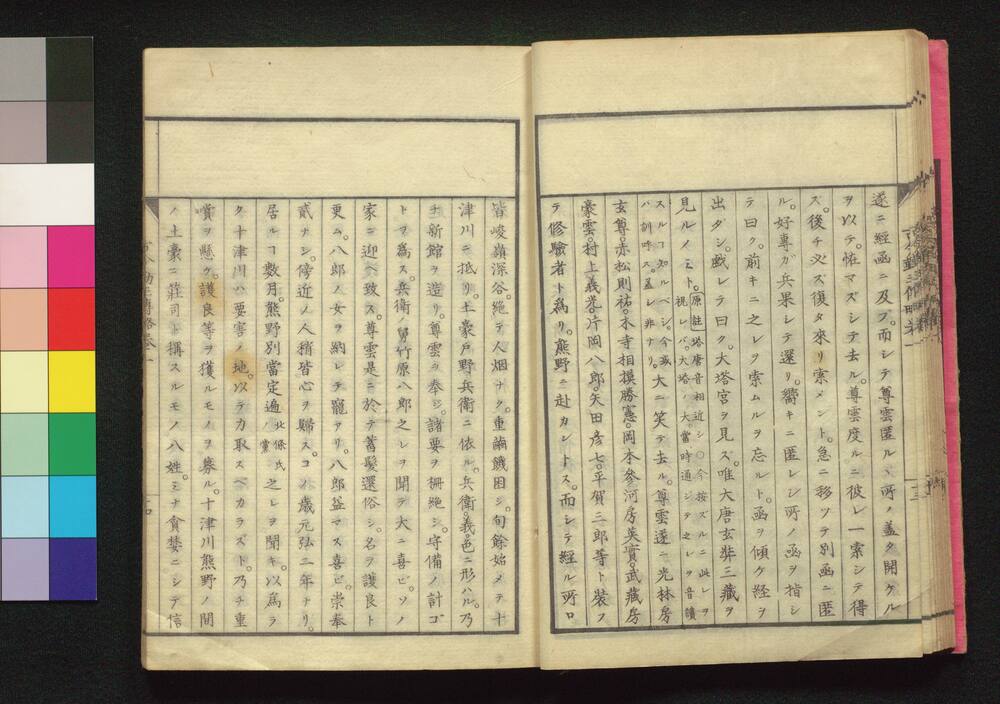 遂ニ經函ニ及ブ。而シテ尊雲匿ルヽ所ノ蓋タ開ケル
ヲ以テ。怪マズシテ去ル。尊雲度ルニ彼レ一索シテ得
ズ。後チ必ズ復タ來リ索メント。急ニ移ツテ別函ニ匿
ル。好專ガ兵果シテ還リ。嚮キニ匿レシ所ノ函ヲ指シ
テ曰ク。前キニ之レヲ索ムルヲ忘ルト。函ヲ傾ケ経ヲ
出ダシ。戯レテ曰ク。大塔宮ヲ見ズ。唯大唐玄弉三藏ヲ
見ルノミト。原註塔唐音相近シ○今按ズルニ此レヲ視レバ。大塔ノ大。當時通シテ之レヲ音讀
スルコ知ルベシ。今或ハ訓呼ス。蓋レ非ナリ。大ニ笑テ去ル。尊雲遂ニ光林房
玄尊。赤松則祐。木寺相摸。勝憲。岡本參河房。英實。武藏房
豪雲。村上義光。片岡八郎。矢田彦七。平賀三郎等ト装ヲ
テ修驗者ト為リ。熊野ニ赴カントス。而シテ經ル所ロ
皆峻嶺深谷。絶テ人烟ナク。重繭饑困シ。旬餘始メテ十
津川ニ抵リ。土豪戸野兵衛ニ依ル。兵衛。義。色ニ形ハル。乃
チ新館ヲ造リ。尊雲ヲ奉ジ。諸要ヲ柵絶シ。守備ノ計ゴ
トヲ為ス。兵衛ノ舅竹原八郎之レヲ聞テ大ニ喜ビ。ソノ
家ニ迎ヘ致ス。尊雲是ニ於テ蓄髮還俗シ。名ヲ護良ト
更ム。八郎ノ女ヲ納レテ寵アリ。八郎益マス喜ビ。崇奉
貳ナシ。傍近ノ人稍皆心ヲ歸ス。コノ歳元弘二年ナリ。
居ルコ數月。熊野別當定遍北條氏ノ黨之レヲ聞キ。以爲ラ
ク十津川ハ要害ノ地。以テ力取スベカラズト。乃チ重
賞ヲ懸ケ。護良等ヲ獲ルモノヲ募ル。十津川熊野ノ間
ノ土豪ニ莊司ト稱スルモノ八姓。ミナ貪婪ニシテ信